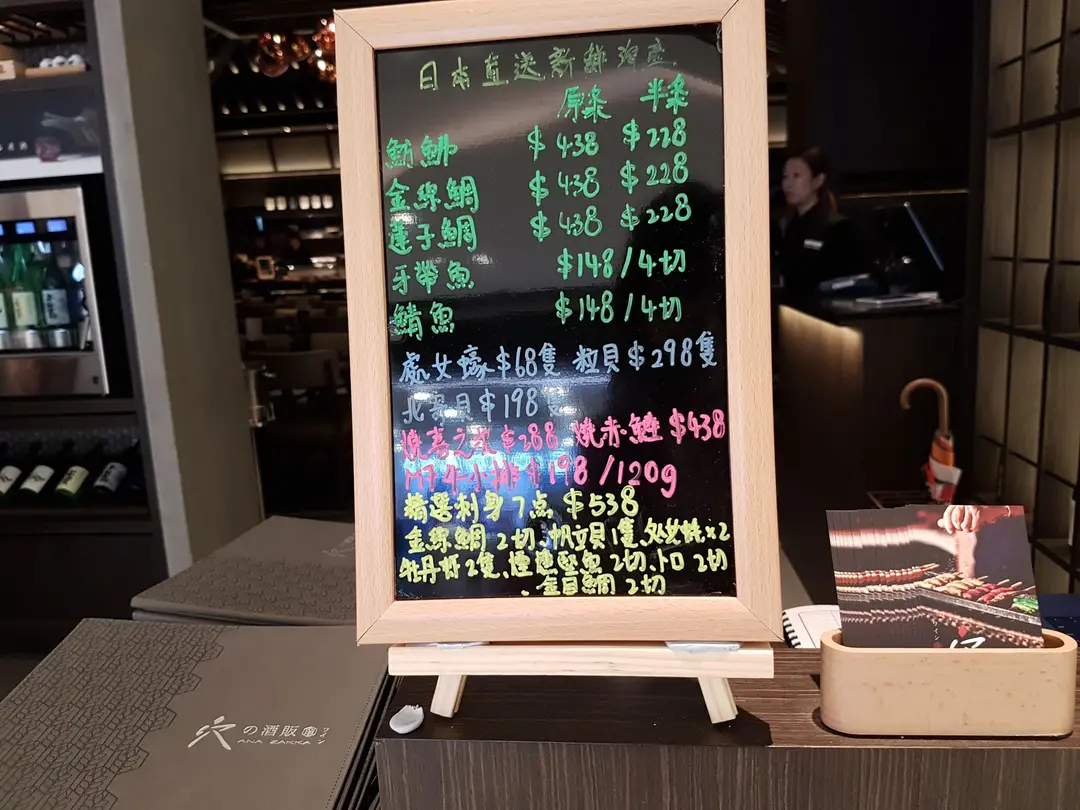 日本直送新鮮海產
原条 半条
魴鮄 $438 $228
金線鯛 $438 $228
蓮子鯛 $438 $228
牙帶魚 $148/4切
鯖魚 $148/4切
處女蠔 $68隻 粒貝 $298隻
北寄貝 $198隻
燒喜之次 $288 燒赤鯥 $438
M7牛小排 $198/120g
精選刺身7点 $538
金線鯛2切、帆立貝1隻、处女蚝x2
牡丹虾2隻、煙燻鰹魚2切、トロ2切
金目鯛2切
穴の酒販
ANA ZAKKA